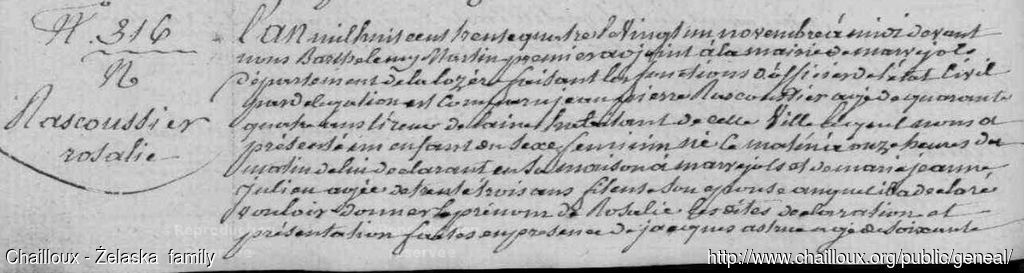 N. 316
N
Rascoussier
rosalie
L'an mil huit cent trente quatre le Vingt un novembre à midi devant
nous Barthelemy Martin premier adjoint à la mairie de marvejols
département de la lozère faisant les fonctions d'officier de l'état Civil
par delegation est Comparu jean pierre Rascoussier agé de quarante
quatre ans tireur de laine habitant de cette Ville lequel nous a
présenté un enfant du sexe feminin né le matin à onze heures du
matin de lui declarant en sa maison à marvejols et de marie jeanne
Julien agée de trente trois ans fileuse son epouse auquel il a declaré
vouloir donner le prénom de Rosalie les dites declaration et
présentation faites en presence de jacques astruc agé de soixante
Chailloux - Želaska family
http://www.chailloux.org/public/geneal/